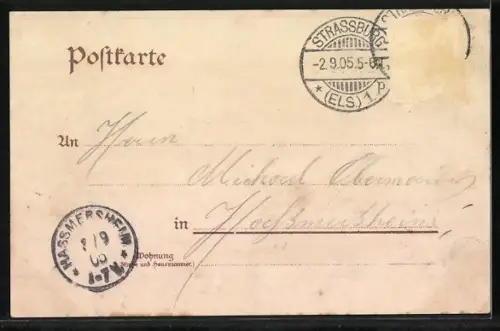 Postkarte
STRASSBURG
-2.9.05.5-6
* (ELS.) 1 P
An Herrn
Michael Obermaier
in Haßmersheim
Wohnung
(Straße und Hausnummer.)
HASSMERSHEIM
3/9
05
1-7V.